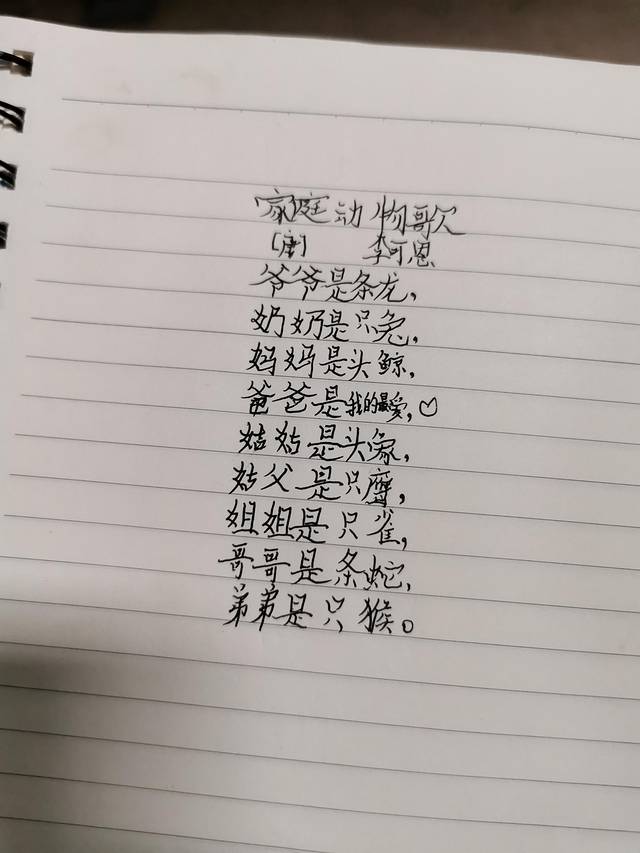 家庭动物歌
[唐] 李可恩
爷爷是条龙,
奶奶是只兔,
妈妈是头鲸,
爸爸是我的最爱,♡
姑姑是头象,
姑父是只鹰,
姐姐是只雀,
哥哥是条蛇,
弟弟是只猴。